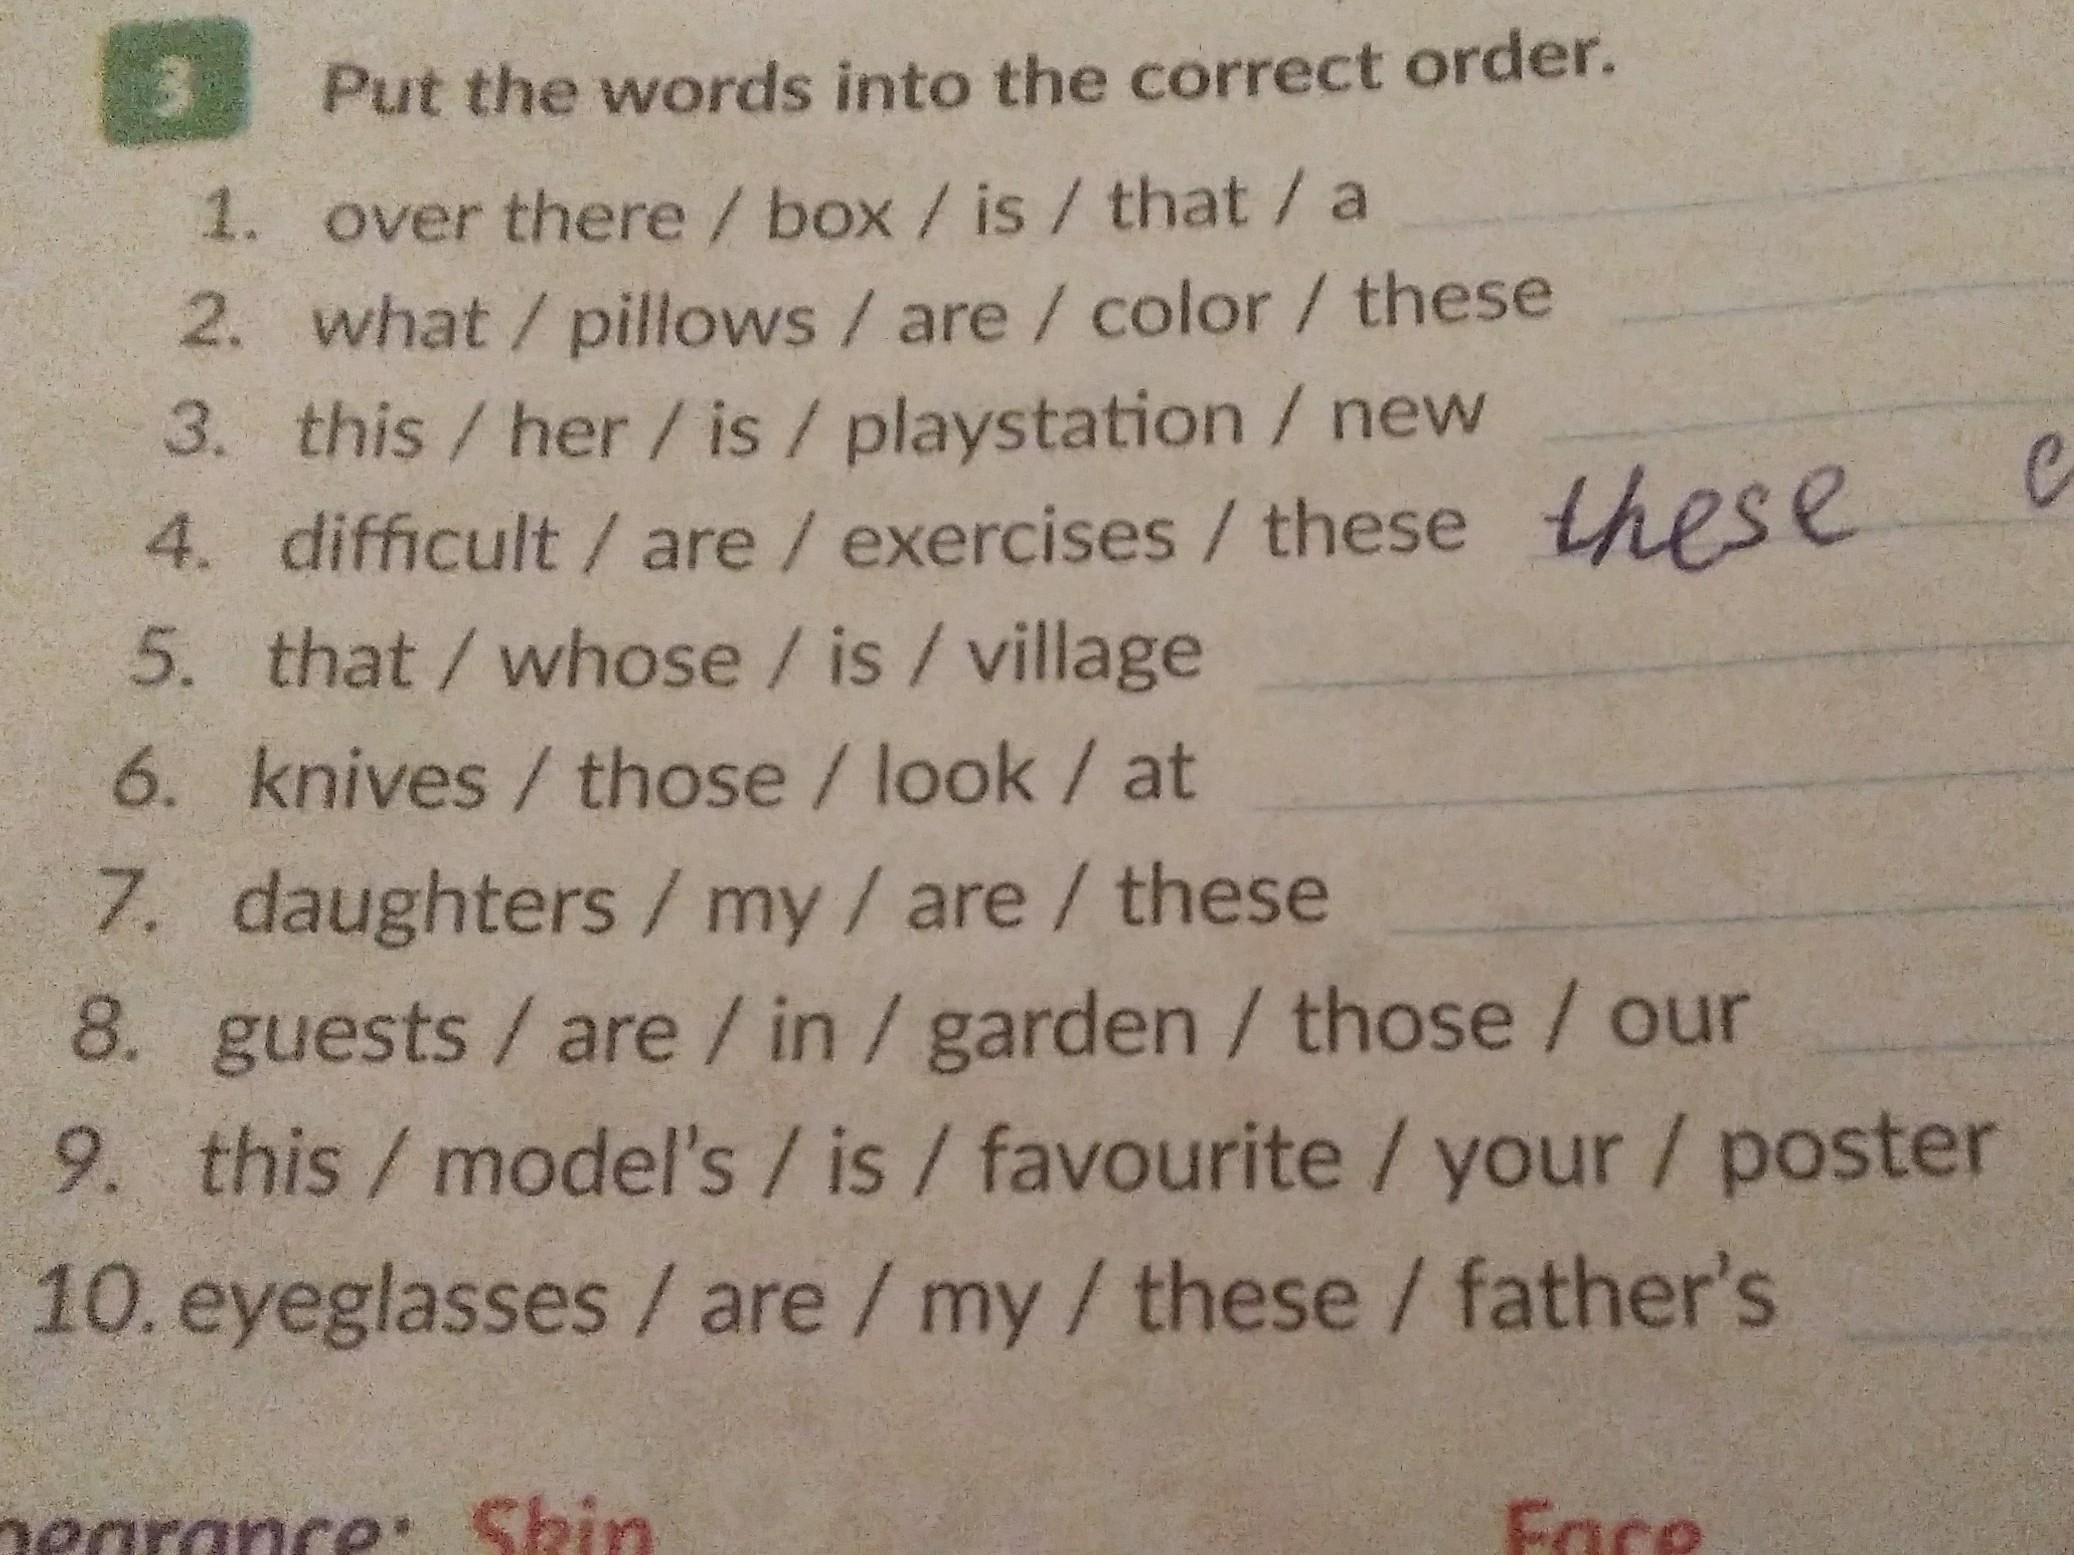 3 Put the words into the correct order.
1. over there / box / is / that / a
2. what / pillows / are / color / these
3. this / her / is / playstation / new
4. difficult / are / exercises / these these
5. that / whose / is / village
6. knives / those / look / at
7. daughters / my / are / these
8. guests / are / in / garden / those / our
9. this / model's / is / favourite / your / poster
10. eyeglasses / are / my / these / father's
Skin Face